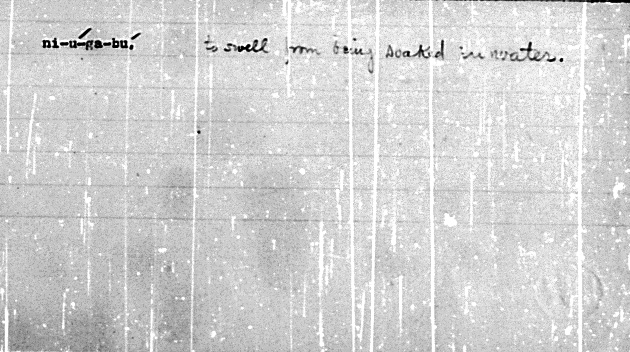 ni-ú-ga-bu.́ to swell from being soaked in water.